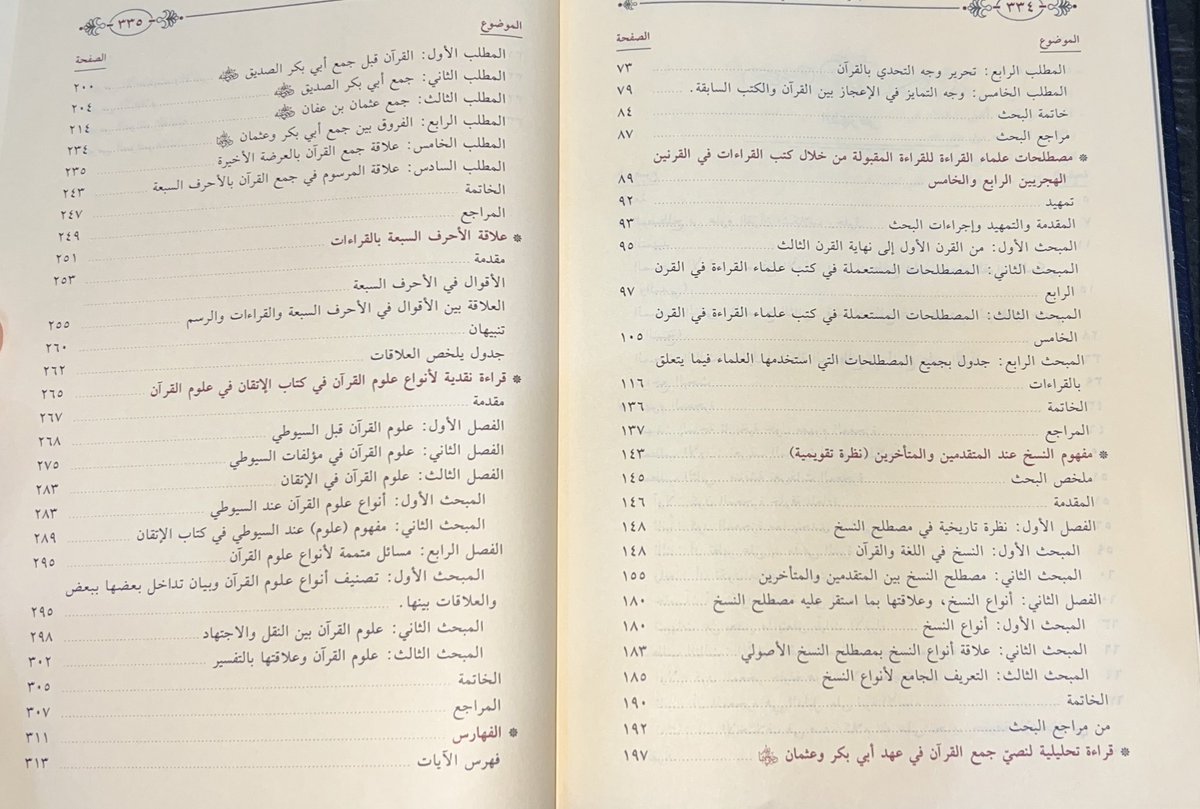 ٣٣٤
الموضوع الصفحة
المطلب الرابع: تحرير وجه التحدي بالقرآن ٧٣
المطلب الخامس: وجه التمايز في الإعجاز بين القرآن والكتب السابقة. ٧٩
خاتمة البحث ٨٤
مراجع البحث ٨٧
* مصطلحات علماء القراءة للقراءة المقبولة من خلال كتب القراءات في القرنين
الهجريين الرابع والخامس ٨٩
تمهيد ٩٢
المقدمة والتمهيد وإجراءات البحث ٩٣
المبحث الأول: من القرن الأول إلى نهاية القرن الثالث ٩٥
المبحث الثاني: المصطلحات المستعملة في كتب علماء القراءة في القرن
الرابع ٩٧
المبحث الثالث: المصطلحات المستعملة في كتب علماء القراءة في القرن
الخامس ١٠٥
المبحث الرابع: جدول بجميع المصطلحات التي استخدمها العلماء فيما يتعلق
بالقراءات ١١٦
الخاتمة ١٣٦
المراجع ١٣٧
* مفهوم النسخ عند المتقدمين والمتأخرين (نظرة تقويمية) ١٤٣
ملخص البحث ١٤٥
المقدمة ١٤٦
الفصل الأول: نظرة تاريخية في مصطلح النسخ ١٤٨
المبحث الأول: النسخ في اللغة والقرآن ١٤٨
المبحث الثاني: مصطلح النسخ بين المتقدمين والمتأخرين ١٥٥
الفصل الثاني: أنواع النسخ، وعلاقتها بما استقر عليه مصطلح النسخ ١٨٠
المبحث الأول: أنواع النسخ ١٨٠
المبحث الثاني: علاقة أنواع النسخ بمصطلح النسخ الأصولي ١٨٣
المبحث الثالث: التعريف الجامع لأنواع النسخ ١٨٥
الخاتمة ١٩٠
من مراجع البحث ١٩٢
* قراءة تحليلية لنصيّ جمع القرآن في عهد أبي بكر وعثمان ١٩٧
٣٣٥
الموضوع الصفحة
المطلب الأول: القرآن قبل جمع أبي بكر الصديق ٢٠٠
المطلب الثاني: جمع أبي بكر الصديق ٢٠٤
المطلب الثالث: جمع عثمان بن عفان ٢١٤
المطلب الرابع: الفروق بين جمع أبي بكر وعثمان ٢٣٤
المطلب الخامس: علاقة جمع القرآن بالعرضة الأخيرة ٢٣٥
المطلب السادس: علاقة المرسوم في جمع القرآن بالأحرف السبعة ٢٤٣
الخاتمة ٢٤٧
المراجع ٢٤٩
* علاقة الأحرف السبعة بالقراءات ٢٥١
مقدمة ٢٥٣
الأقوال في الأحرف السبعة
العلاقة بين الأقوال في الأحرف السبعة والقراءات والرسم ٢٥٥
تنبيهان ٢٦٠
جدول يلخص العلاقات ٢٦٢
* قراءة نقدية لأنواع علوم القرآن في كتاب الإتقان في علوم القرآن ٢٦٥
مقدمة ٢٦٧
الفصل الأول: علوم القرآن قبل السيوطي ٢٦٨
الفصل الثاني: علوم القرآن في مؤلفات السيوطي ٢٧٥
الفصل الثالث: علوم القرآن في الإتقان ٢٨٣
المبحث الأول: أنواع علوم القرآن عند السيوطي ٢٨٣
المبحث الثاني: مفهوم (علوم) عند السيوطي في كتاب الإتقان ٢٨٩
الفصل الرابع: مسائل متممة لأنواع علوم القرآن ٢٩٥
المبحث الأول: تصنيف أنواع علوم القرآن وبيان تداخل بعضها ببعض
والعلاقات بينها. ٢٩٥
المبحث الثاني: علوم القرآن بين النقل والاجتهاد ٢٩٨
المبحث الثالث: علوم القرآن وعلاقتها بالتفسير ٣٠٢
الخاتمة ٣٠٥
المراجع ٣٠٧
* الفهارس ٣١١
فهرس الآيات ٣١٣